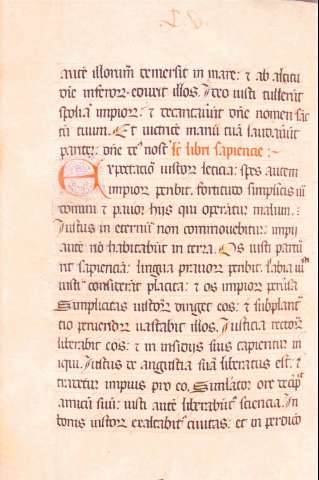 autē illorum demersit in mare: ⁊ ab altitu
dīe inferorꝝ eduxit illos. Ideo iusti tulerūt
spolia impiorꝝ: ⁊ decantauūt dn̄e nomen sāc
tū tuum. Et uictricē manū tuā laudauūt
pariter: dn̄e dē nost̄ Lc̄ libri sapiencie:
Expectatio iustorꝝ leticia: spes autem
impiorꝝ peribit. Fortitudo simplicis uia
domini: ⁊ pauor hiis qui operātur malum.
Iustus in eternū non commouebitur: impii
autē nō habitabūt in terra. Os iusti partu
rit sapienciā: lingua prauorꝝ peribit. Labia iustī
iusti considerāt placita: ⁊ os impiorꝝ peruersa
Simplicitas iustorꝝ diriget eos: ⁊ subplantā
tio peruersorꝝ uastabit illos. Iusticia rectorꝝ
liberabit eos: ⁊ in insidiis suis capientur in
iqui. Iustus de angustia suā liberatus est: ⁊
tradetur impius pro eo. Simulator ore decipit
amicū suū: iusti autē liberabūt sciencia. In
bonis iustorꝝ exaltabit ciuitas: et in perdicio